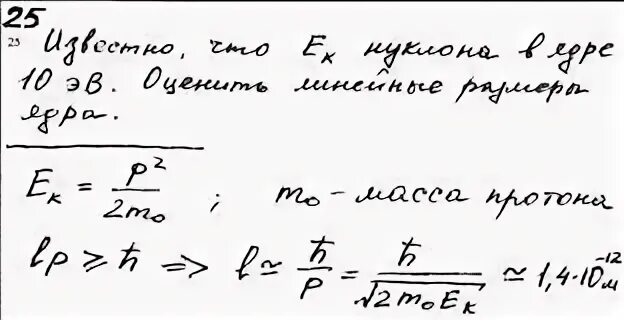 25
25 Известно, что Eк нуклона в ядре
10 эВ. Оценить линейные размеры
ядра.
Eк = p²/2m₀ ; m₀ - масса протона
lp ⩾ ħ ⇒ l ≃ ħ/p = ħ/√(2m₀Eк) ≃ 1,4·10⁻¹² м